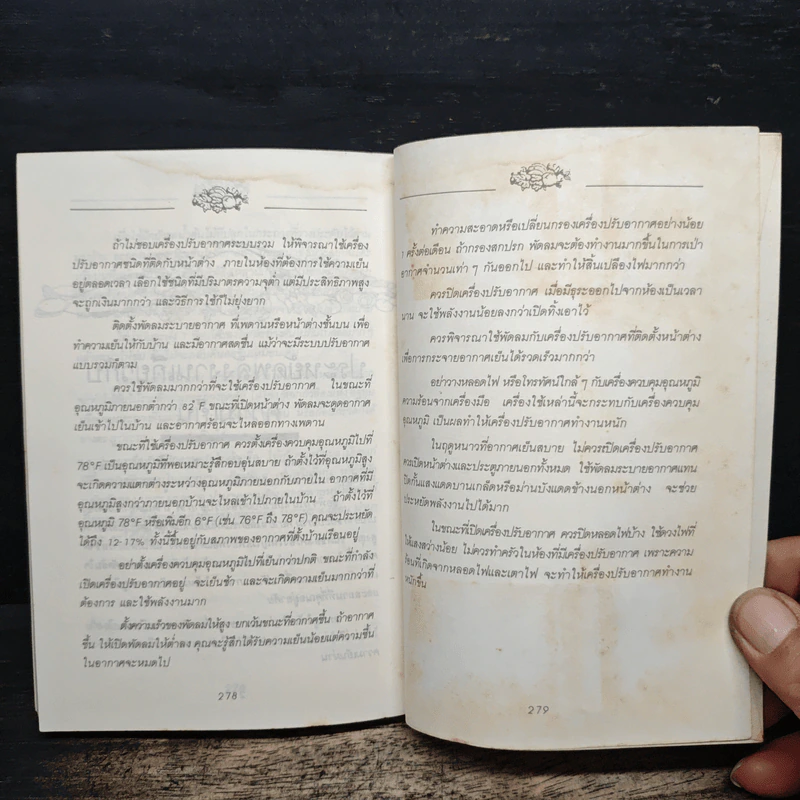 ถ้าไม่ชอบเครื่องปรับอากาศระบบรวม ให้พิจารณาใช้เครื่อง
ปรับอากาศชนิดที่ติดกับหน้าต่าง ภายในห้องที่ต้องการใช้ความเย็น
อยู่ตลอดเวลา เลือกใช้ชนิดที่มีปริมาตรความจุต่ำ แต่มีประสิทธิภาพสูง
จะถูกเงินมากกว่า และวิธีการใช้ก็ไม่ยุ่งยาก
ติดตั้งพัดลมระบายอากาศ ที่เพดานหรือหน้าต่างชั้นบน เพื่อ
ทำความเย็นให้กับบ้าน และมีอากาศสดชื่น แม้ว่าจะมีระบบปรับอากาศ
แบบรวมก็ตาม
ควรใช้พัดลมมากกว่าที่จะใช้เครื่องปรับอากาศ ในขณะที่
อุณหภูมิภายนอกต่ำกว่า 82 F ขณะที่เปิดหน้าต่าง พัดลมจะดูดอากาศ
เย็นเข้าไปในบ้าน และอากาศร้อนจะไหลออกทางเพดาน
ขณะที่ใช้เครื่องปรับอากาศ ควรตั้งเครื่องควบคุมอุณหภูมิไปที่
78°F เป็นอุณหภูมิที่พอเหมาะรู้สึกอบอุ่นสบาย ถ้าตั้งไว้ที่อุณหภูมิสูง
จะเกิดความแตกต่างระหว่างอุณหภูมิภายนอกกับภายใน อากาศที่มี
อุณหภูมิสูงกว่าภายนอกบ้านจะไหลเข้าไปภายในบ้าน ถ้าตั้งไว้ที่
อุณหภูมิ 78°F หรือเพิ่มอีก 6°F (เช่น 76°F ถึง 78°F) คุณจะประหยัด
ได้ถึง 12-17% ทั้งนี้ขึ้นอยู่กับสภาพของอากาศที่ตั้งบ้านเรือนอยู่
อย่าตั้งเครื่องควบคุมอุณหภูมิไปที่เย็นกว่าปกติ ขณะที่กำลัง
เปิดเครื่องปรับอากาศอยู่ จะเย็นช้า และจะเกิดความเย็นมากกว่าที่
ต้องการ และใช้พลังงานมาก
ตั้งความเร็วของพัดลมให้สูง ยกเว้นขณะที่อากาศชื้น ถ้าอากาศ
ชื้น ให้เปิดพัดลมให้ต่ำลง คุณจะรู้สึกได้รับความเย็นน้อยแต่ความชื้น
ในอากาศจะหมดไป
278
ทำความสะอาดหรือเปลี่ยนกรองเครื่องปรับอากาศอย่างน้อย
1 ครั้งต่อเดือน ถ้ากรองสกปรก พัดลมจะต้องทำงานมากขึ้นในการเป่า
อากาศจำนวนเท่า ๆ กันออกไป และทำให้สิ้นเปลืองไฟมากกว่า
ควรปิดเครื่องปรับอากาศ เมื่อมีธุระออกไปจากห้องเป็นเวลา
นาน จะใช้พลังงานน้อยลงกว่าเปิดทิ้งเอาไว้
ควรพิจารณาใช้พัดลมกับเครื่องปรับอากาศที่ติดตั้งหน้าต่าง
เพื่อการกระจายอากาศเย็นได้รวดเร็วมากกว่า
อย่าวางหลอดไฟ หรือโทรทัศน์ใกล้ ๆ กับเครื่องควบคุมอุณหภูมิ
ความร้อนจากเครื่องมือ เครื่องใช้เหล่านี้จะกระทบกับเครื่องควบคุม
อุณหภูมิ เป็นผลทำให้เครื่องปรับอากาศทำงานหนัก
ในฤดูหนาวที่อากาศเย็นสบาย ไม่ควรเปิดเครื่องปรับอากาศ
ควรเปิดหน้าต่างและประตูภายนอกทั้งหมด ใช้พัดลมระบายอากาศแทน
ปิดกั้นแสงแดดบานเกล็ดหรือม่านบังแดดข้างนอกหน้าต่าง จะช่วย
ประหยัดพลังงานไปได้มาก
ในขณะที่เปิดเครื่องปรับอากาศ ควรปิดหลอดไฟบ้าง ใช้ดวงไฟที่
ให้แสงสว่างน้อย ไม่ควรทำครัวในห้องที่มีเครื่องปรับอากาศ เพราะความ
ร้อนที่เกิดจากหลอดไฟและเตาไฟ จะทำให้เครื่องปรับอากาศทำงาน
หนักขึ้น
279